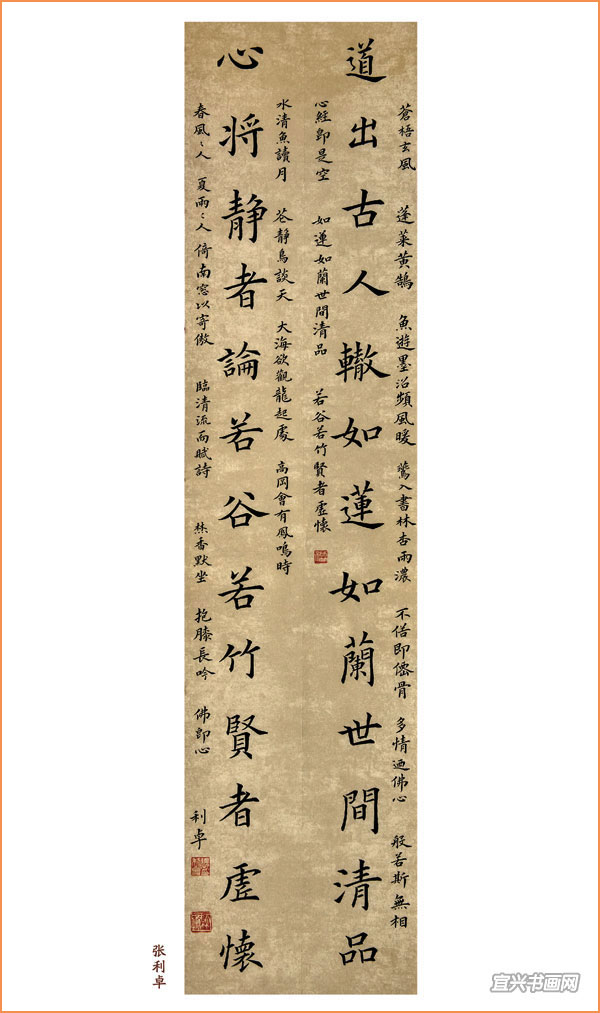 蒼梧玄風 蓬萊黃鵠 魚遊墨沼頻風暖 鶯入書林杏雨濃 不俗即僊骨 多情迺佛心 般若斯無相
道出古人轍如蓮如蘭世間清品
心經即是空 如蓮如蘭世間清品 若谷若竹賢者虛懷
水清魚讀月 花静鳥談天 大海欲觀龍起處 高岡會有鳳鳴時
心将静者論若谷若竹賢者虛懷
春風〻人 夏雨〻人 倚南窓以寄傲 臨清流而賦詩 焚香默坐 抱膝長吟 佛即心 利卓
张利卓
宜兴书画网